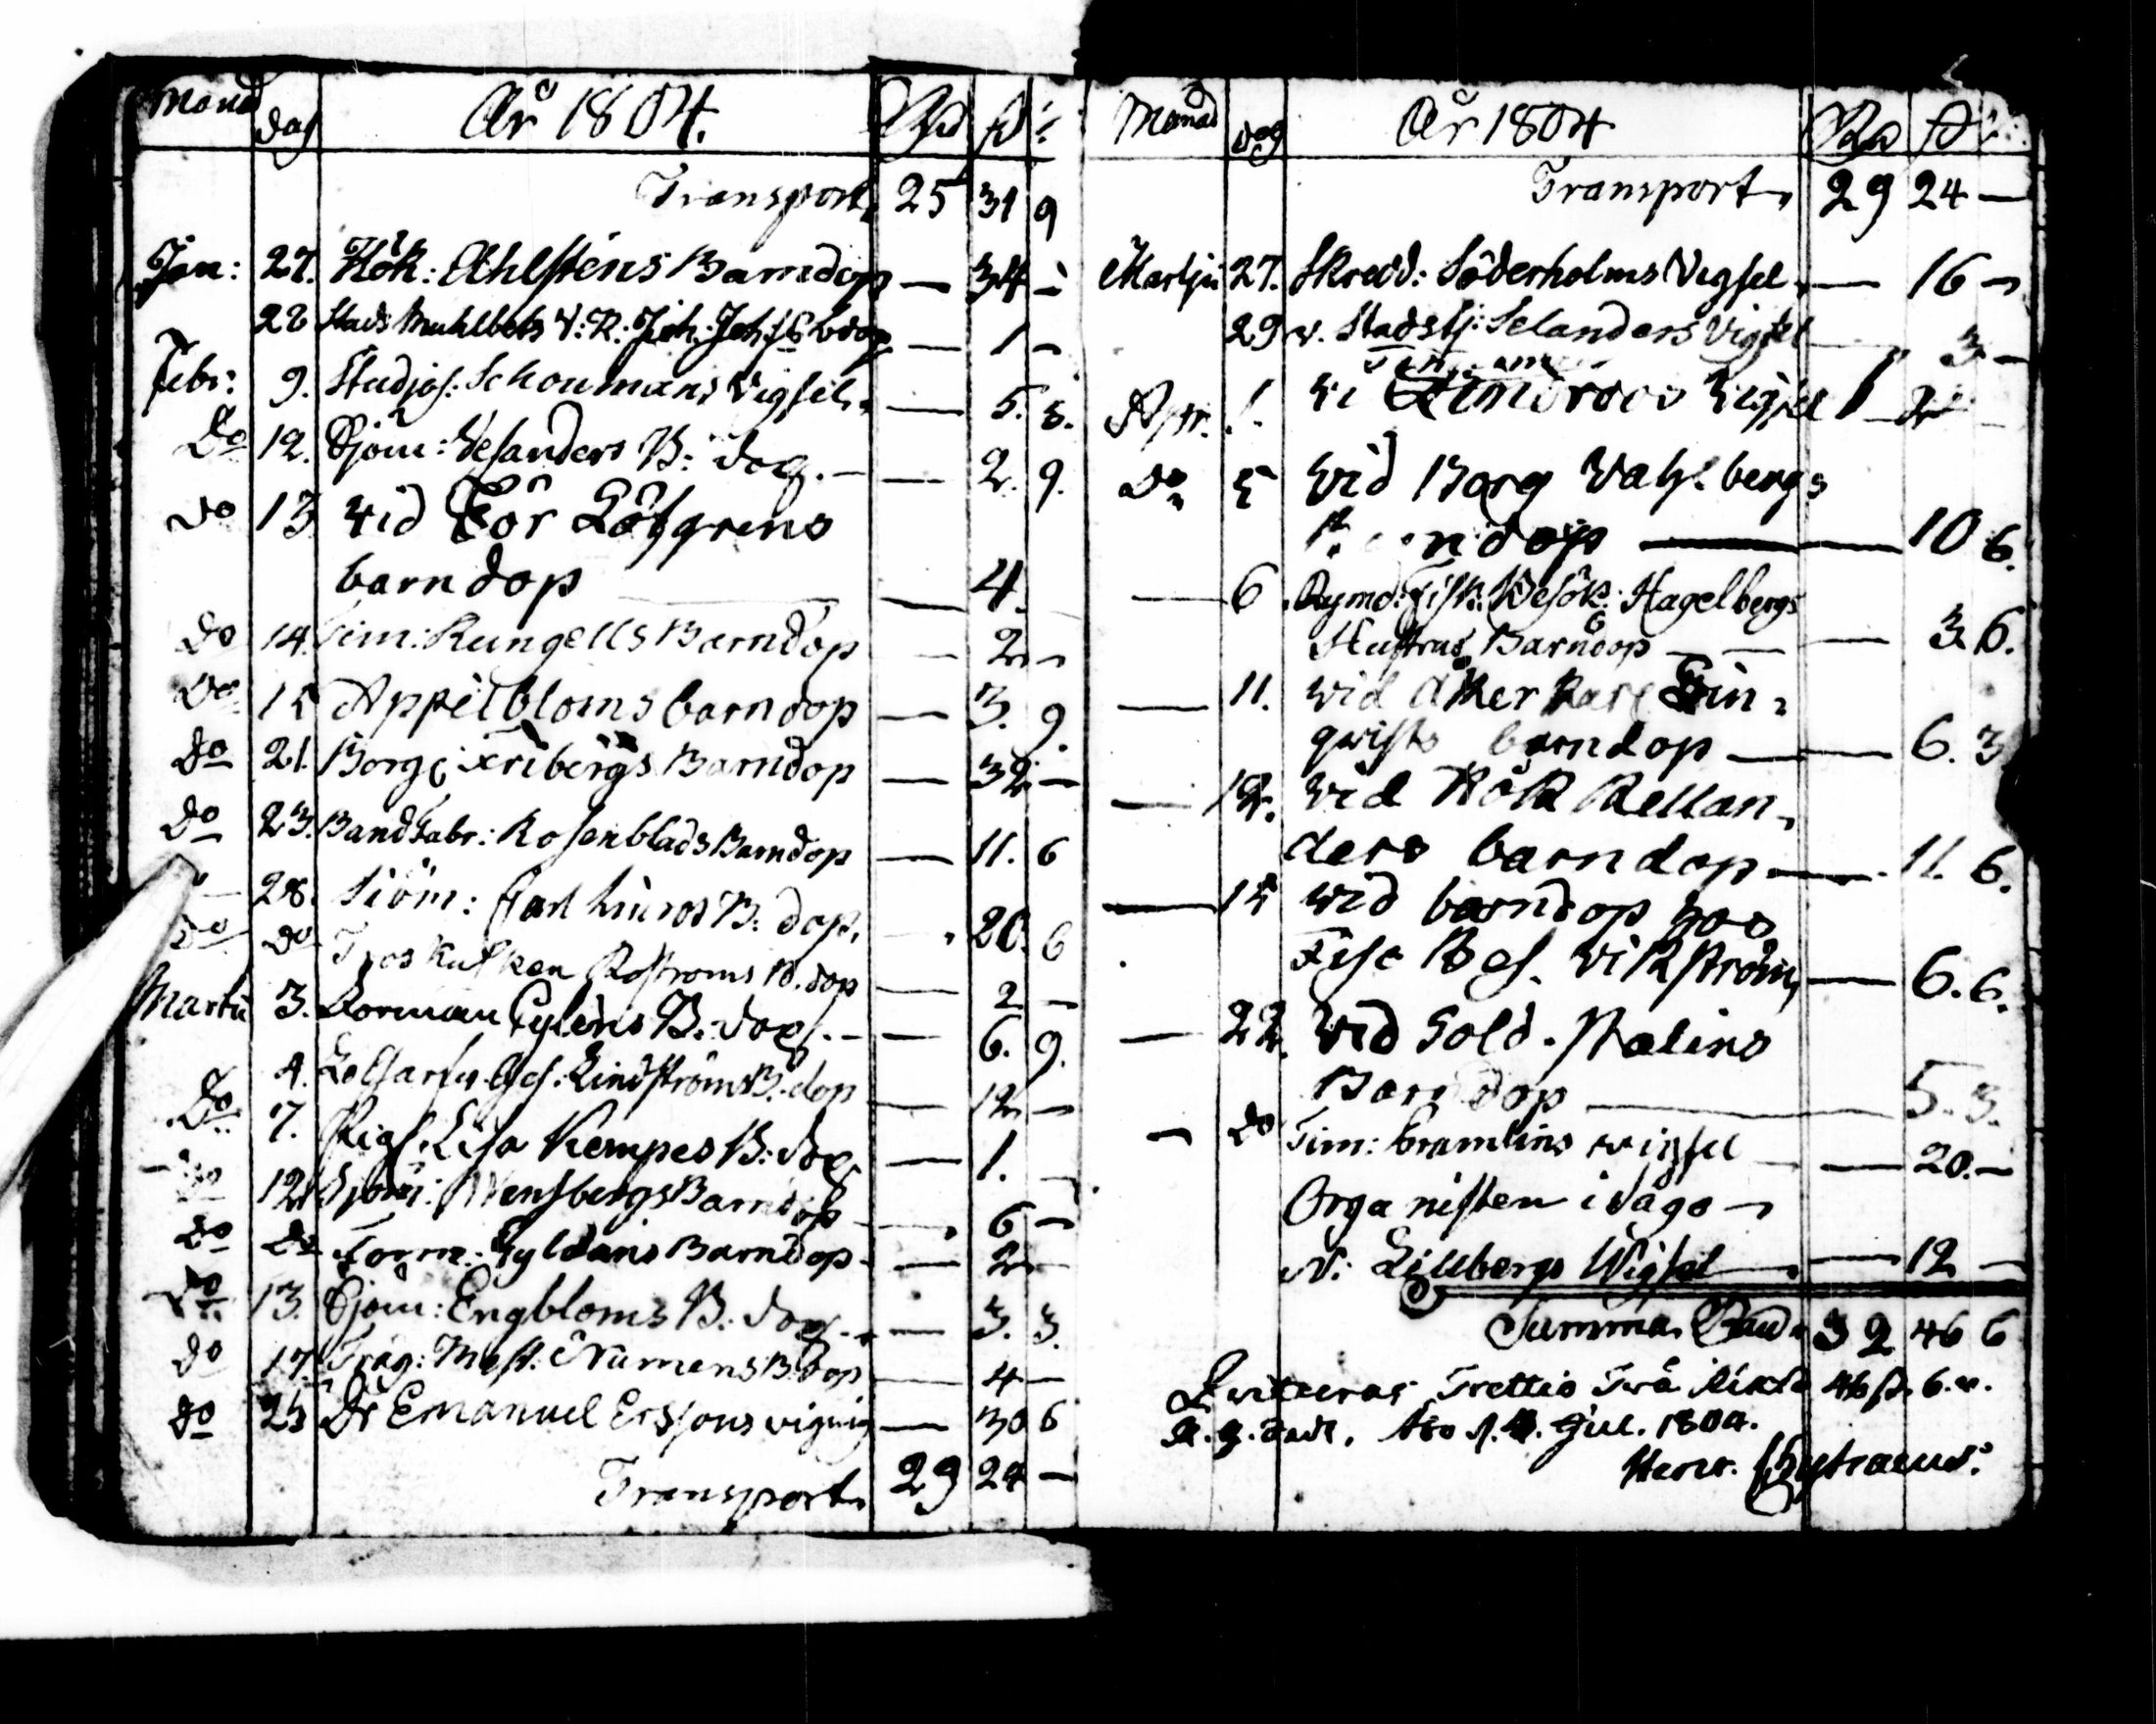 Månad dag År 1804. Rd ß
Transport, 25 31 9
Jan: 27. Hök: Ahlsténs Barndop — 34 -
28 Stads 1 -
Febr: 9. Studios: Schoumans Vigsel. — 5. 3.
Do 12. Sjöm: Vesanders B: dop. — 2. 9.
Do 13 vid Löfgrens
barndop — 4.
Do 14. Tim: Rungells Barndop — 2 -
Do 15 Appelbloms barndop — 3. 9.
Do 21. Borg: Fribergs Barndop — 32 -
Do 23. Band Fabr: Rosenblads Barndop — 11. 6
28. Siöm: Carl B: dop. 20. 6
Do Do B. dop — 2 -
Martii 3. B: dop. — 6. 9.
4. Ges: Lindströms B: dop — 12 -
Do 7. Pig: Lisa Kempes B: dop — 1. -
Do 12 Sjöm: Wensbergs Barndop — 6 -
Do Do Gyldans Barndop — 2 -
Do 13. Sjöm: Engbloms B: dop. — 3. 3.
Do 17. Träg: Mäst: B: dop — 4 -
Do 25 Dr Emanuel Erssons vigning — 30 6
Transport, 29 24 -
Månad dag År 1804 Rd ß
Transport, 29 24 —
Martii 27. Skredd: Söderholms Vigsel, — 16 -
29 v. Selanders Vigsel 3 -
Apr. 1. Vigsel
Do 5 vid Borg Vahlbergs
Barndop — 10 6.
— 6 Rymd: Fisk: Besök: Hagelbergs
Hustrus Barndop — 3. 6.
— 11. vid Åker Karl Lin-
qvists barndop — 6. 3
— 12. vid Hök Kellan-
ders barndop — 11. 6.
— 15 vid barndop hos
Fisc Bes. Vikström, — 6. 6.
— 22. vid Sold. Stalins
Barndop — 5. 3.
- Do Tim: Gramlins wigsel — 20. -
Organisten i Vågo -
N: Lillbergs Wigsel — 12 —
Summa Rd 32 46 6
Qviteras Trettio Två Riksd 46 ß. 6. r.
R. g. Åbo d. Jul. 1804.
Henr. Chytraeus.